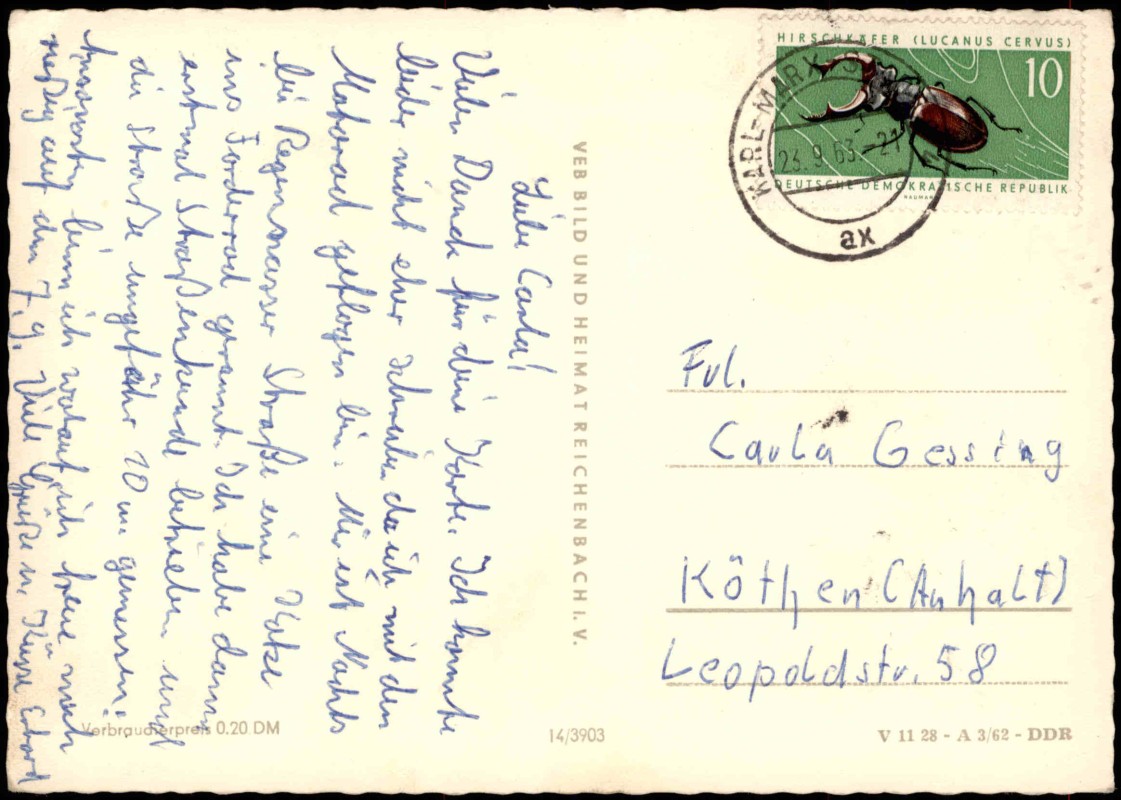 Liebe Carla!
Vielen Dank für deine Karte. Ich konnte
leider nicht eher schreiben da ich mit den
Motorrad geflogen bin. Mir ist Nachts
bei Regenwasser Straße eine Katze
ins Forderrad gerannt. Ich habe dann
erstmal Straßenkunde betrieben und
die Straße ungefähr 10 m gemessen.
Ansonsten bin ich wolauf ich freue mich
rießig auf den 7.9. Viele Grüße u. Küsse
VEB BILD UND HEIMAT REICHENBACH i. V.
HIRSCHKÄFER (LUCANUS CERVUS)
10
DEUTSCHE DEMOKRATISCHE REPUBLIK
KARL-MARX-S
23.9.63-21
ax
Frl.
Carla Gessing
Köthen (Anhalt)
Leopoldstr. 58
Verbraucherpreis 0.20 DM
14/3903
V 11 28 - A 3/62 - DDR